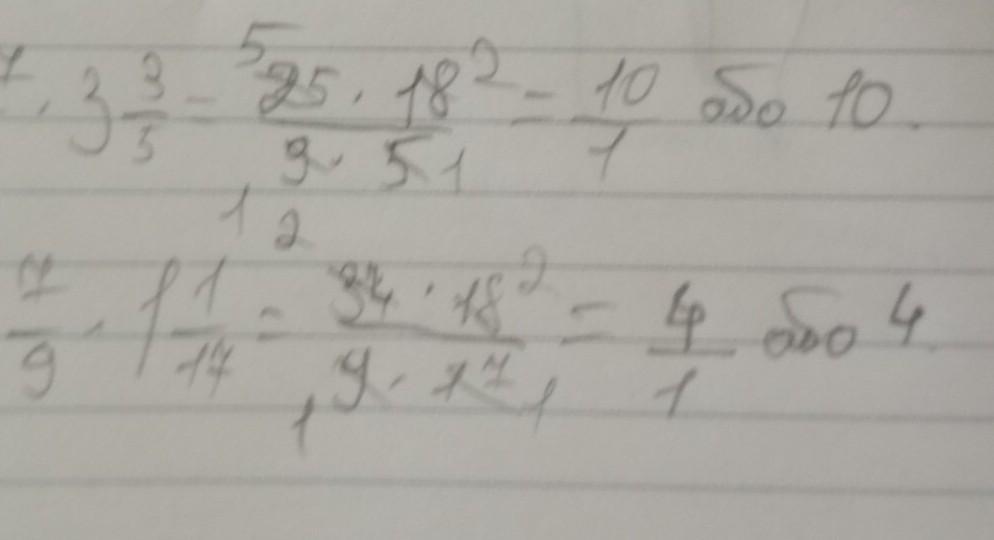 7 · 3 3/5 = ⁵25 · 18² / ₁9 · 5₁ = 10/1 або 10.
7/9 · 1 1/17 = ²34 · 18² / ₁9 · 17₁ = 4/1 або 4